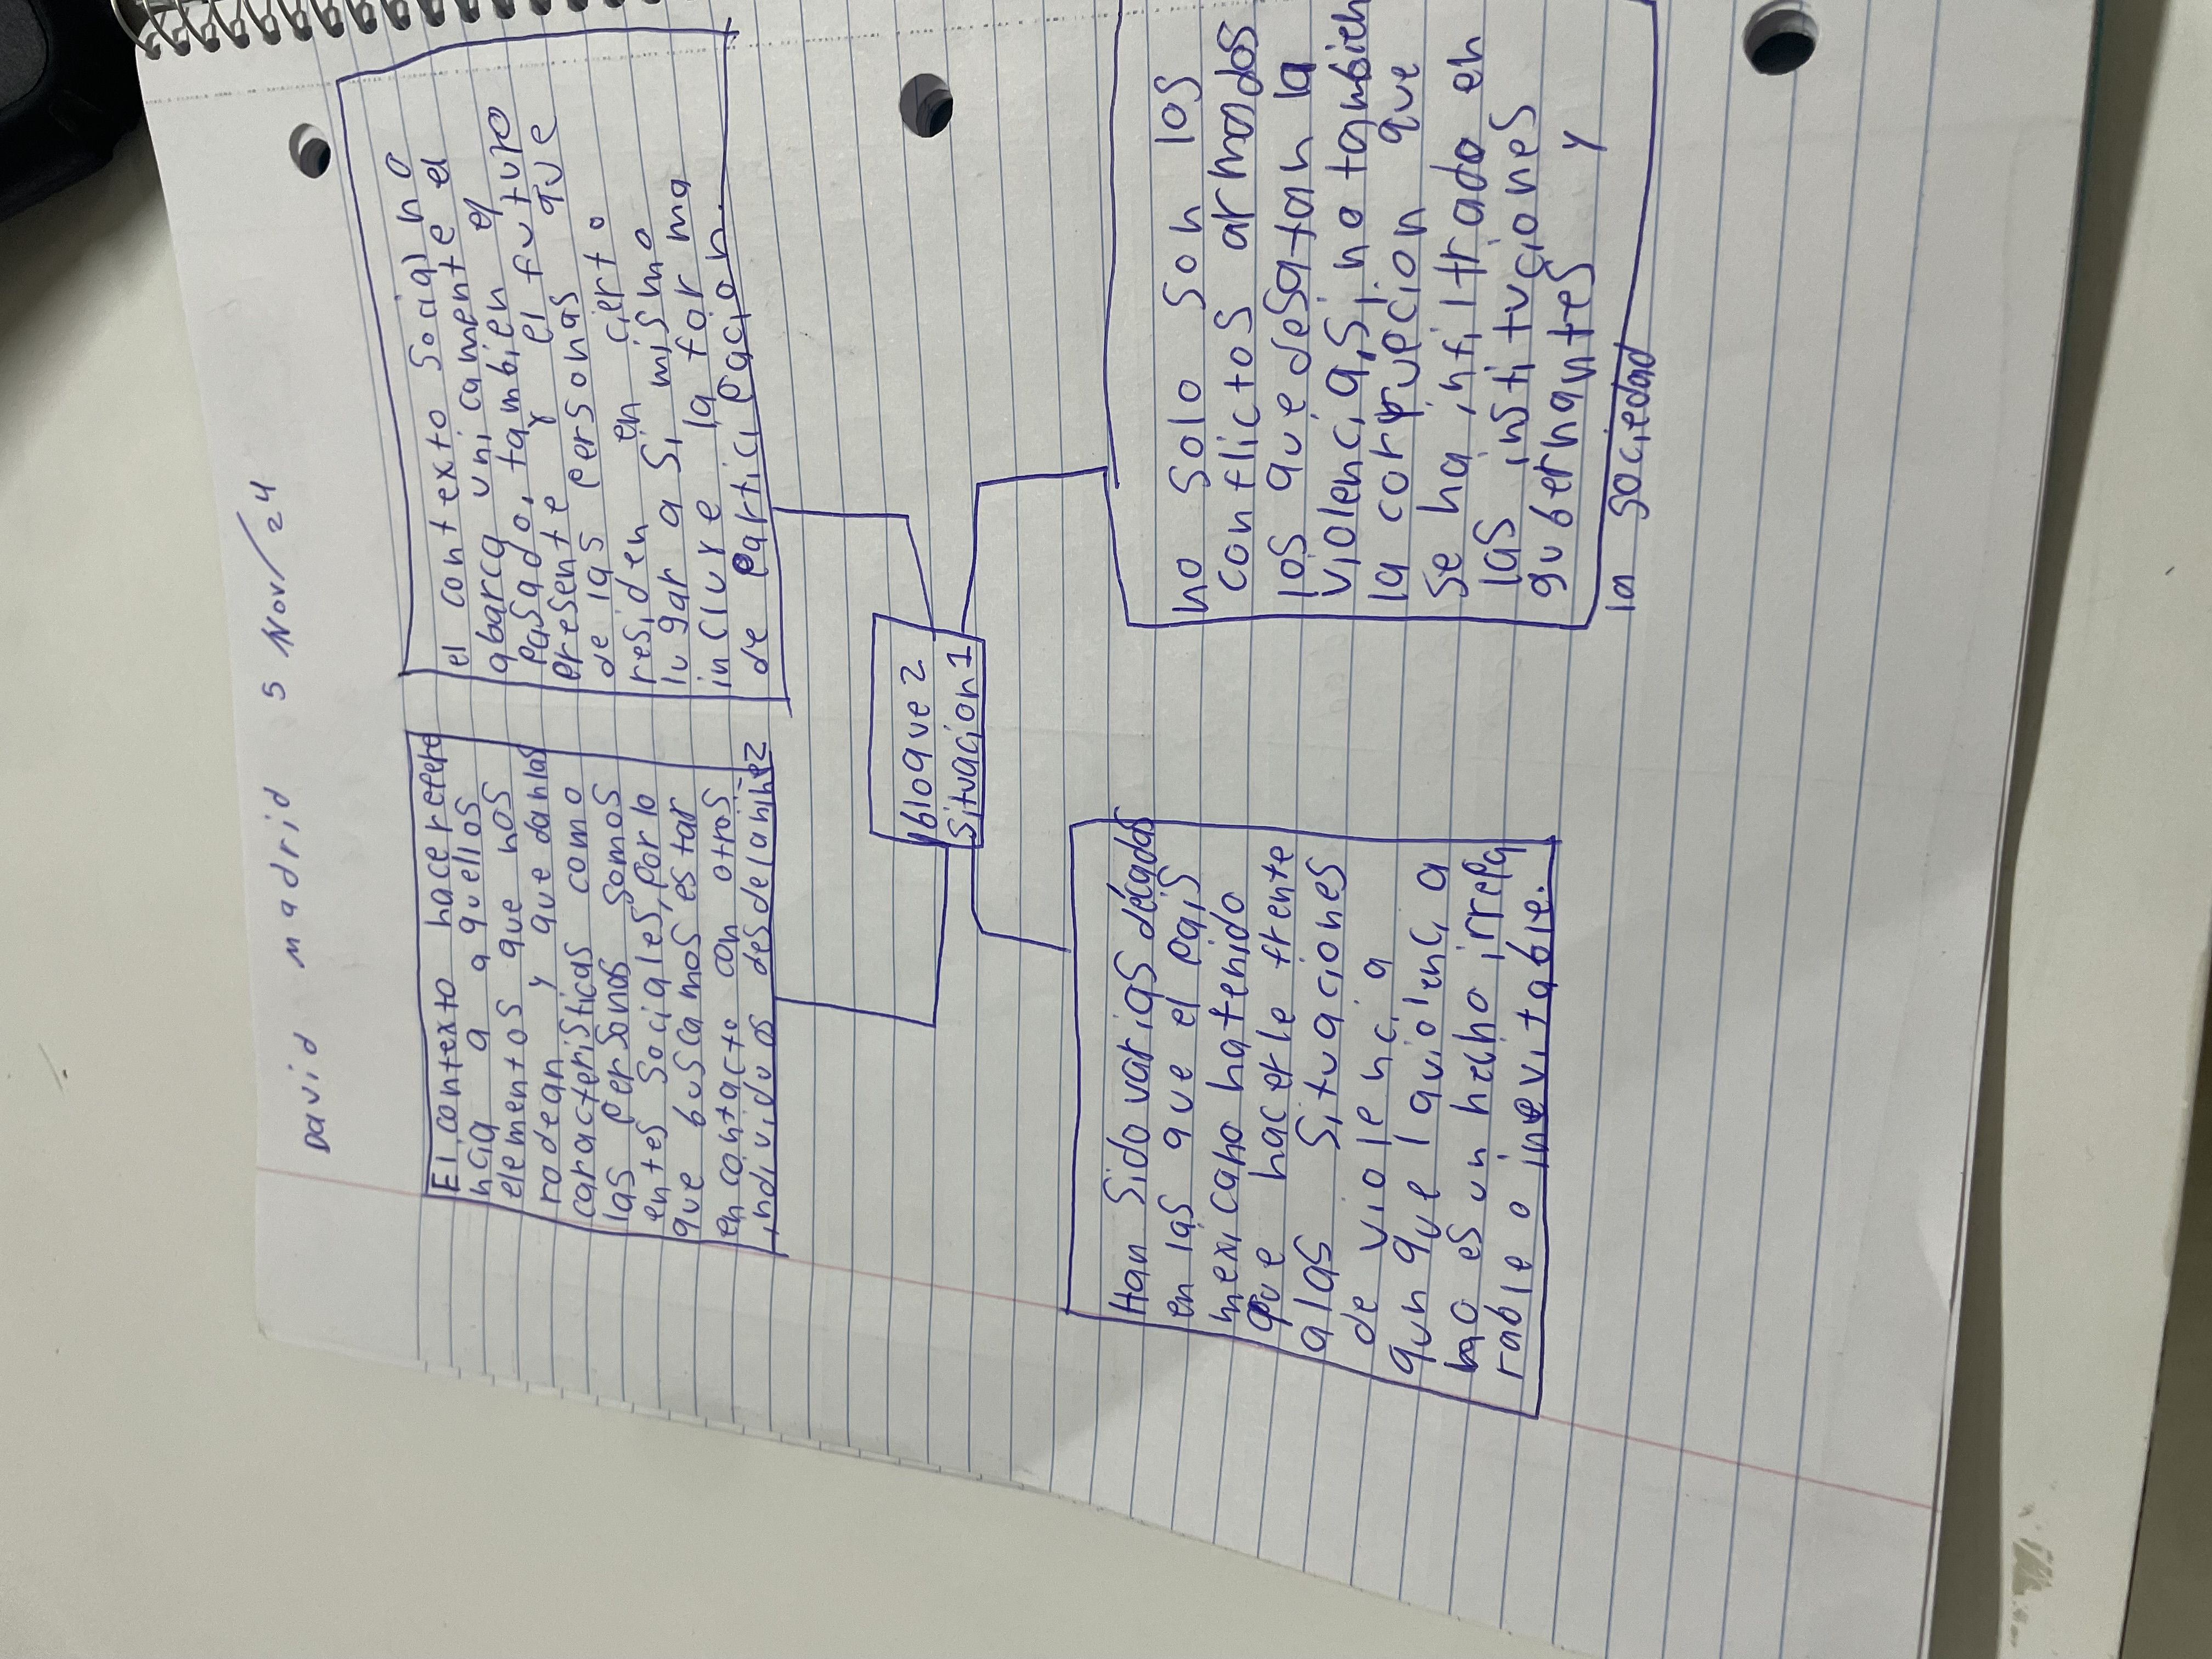 David madrid 5 Nov/24
El contexto hace refere
ncia a aquellos
elementos que nos
rodean y que dan las
caracteristicas como
las personas somos
entes sociales, por lo
que buscamos estar
en contacto con otros
individuos desde la niñez
el contexto social no
abarca unicamente el
pasado, tambien el
presente y el futuro
de las personas que
residen en cierto
lugar a si mismo
incluye la forma
de participacion.
bloque 2
situacion 1
Han sido varias décadas
en las que el pais
mexicano ha tenido
que hacerle frente
a las situaciones
de violencia
aun que la violencia
no es un hecho irrepa
rable o inevitable.
no solo son los
conflictos armados
los que desatan la
violencia, sino tambien
la corrupcion que
se ha infiltrado en
las instituciones
gubernantes y
la sociedad